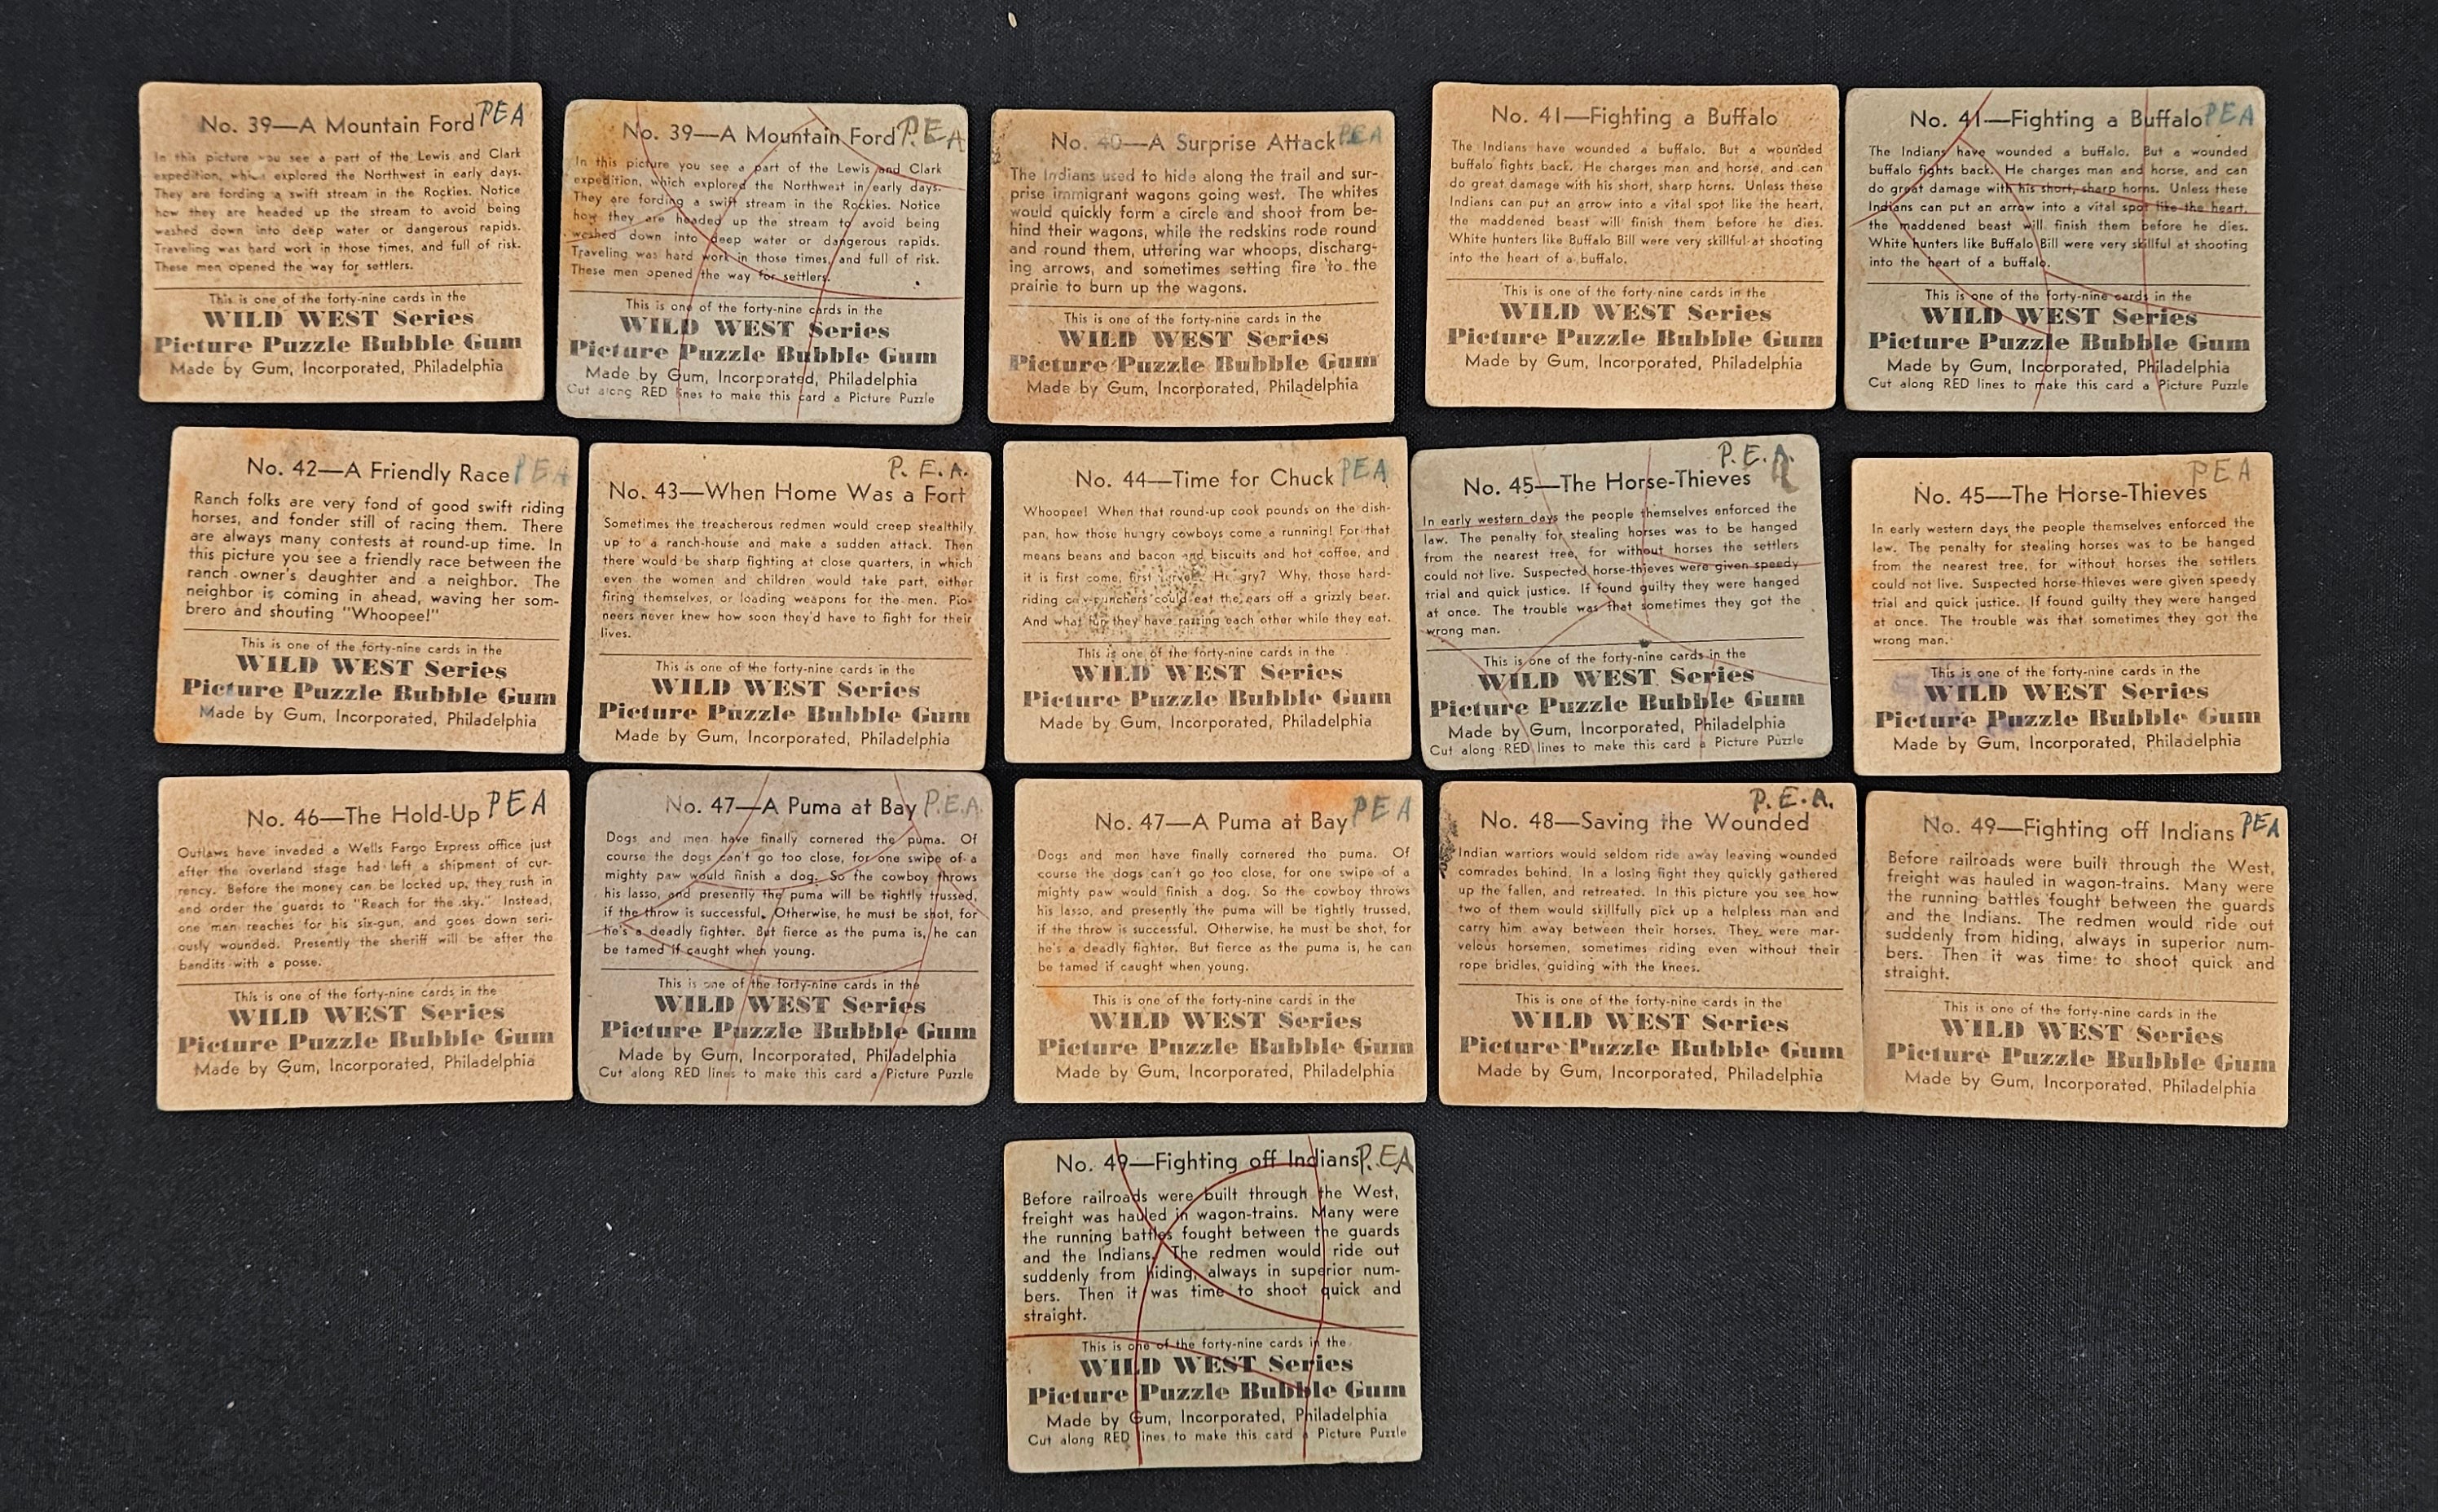 No. 39—A Mountain Ford PEA
In this picture you see a part of the Lewis and Clark
expedition, which explored the Northwest in early days.
They are fording a swift stream in the Rockies. Notice
how they are headed up the stream to avoid being
washed down into deep water or dangerous rapids.
Traveling was hard work in those times, and full of risk.
These men opened the way for settlers.
This is one of the forty-nine cards in the
WILD WEST Series
Picture Puzzle Bubble Gum
Made by Gum, Incorporated, Philadelphia
No. 39—A Mountain Ford P.EA
In this picture you see a part of the Lewis and Clark
expedition, which explored the Northwest in early days.
They are fording a swift stream in the Rockies. Notice
how they are headed up the stream to avoid being
washed down into deep water or dangerous rapids.
Traveling was hard work in those times, and full of risk.
These men opened the way for settlers.
This is one of the forty-nine cards in the
WILD WEST Series
Picture Puzzle Bubble Gum
Made by Gum, Incorporated, Philadelphia
Cut along RED lines to make this card a Picture Puzzle
No. 40—A Surprise Attack PEA
The Indians used to hide along the trail and sur-
prise immigrant wagons going west. The whites
would quickly form a circle and shoot from be-
hind their wagons, while the redskins rode round
and round them, uttering war whoops, discharg-
ing arrows, and sometimes setting fire to the
prairie to burn up the wagons.
This is one of the forty-nine cards in the
WILD WEST Series
Picture Puzzle Bubble Gum
Made by Gum, Incorporated, Philadelphia
No. 41—Fighting a Buffalo
The Indians have wounded a buffalo. But a wounded
buffalo fights back. He charges man and horse, and can
do great damage with his short, sharp horns. Unless these
Indians can put an arrow into a vital spot like the heart,
the maddened beast will finish them before he dies.
White hunters like Buffalo Bill were very skillful at shooting
into the heart of a buffalo.
This is one of the forty-nine cards in the
WILD WEST Series
Picture Puzzle Bubble Gum
Made by Gum, Incorporated, Philadelphia
No. 41—Fighting a Buffalo PEA
The Indians have wounded a buffalo. But a wounded
buffalo fights back. He charges man and horse, and can
do great damage with his short, sharp horns. Unless these
Indians can put an arrow into a vital spot like the heart,
the maddened beast will finish them before he dies.
White hunters like Buffalo Bill were very skillful at shooting
into the heart of a buffalo.
This is one of the forty-nine cards in the
WILD WEST Series
Picture Puzzle Bubble Gum
Made by Gum, Incorporated, Philadelphia
Cut along RED lines to make this card a Picture Puzzle
No. 42—A Friendly Race PEA
Ranch folks are very fond of good swift riding
horses, and fonder still of racing them. There
are always many contests at round-up time. In
this picture you see a friendly race between the
ranch owner's daughter and a neighbor. The
neighbor is coming in ahead, waving her som-
brero and shouting "Whoopee!"
This is one of the forty-nine cards in the
WILD WEST Series
Picture Puzzle Bubble Gum
Made by Gum, Incorporated, Philadelphia
P. E. A.
No. 43—When Home Was a Fort
Sometimes the treacherous redmen would creep stealthily
up to a ranch-house and make a sudden attack. Then
there would be sharp fighting at close quarters, in which
even the women and children would take part, either
firing themselves, or loading weapons for the men. Pio-
neers never knew how soon they'd have to fight for their
lives.
This is one of the forty-nine cards in the
WILD WEST Series
Picture Puzzle Bubble Gum
Made by Gum, Incorporated, Philadelphia
No. 44—Time for Chuck PEA
Whoopee! When that round-up cook pounds on the dish-
pan, how those hungry cowboys come a running! For that
means beans and bacon and biscuits and hot coffee, and
it is first come, first served. Hungry? Why, those hard-
riding cow-punchers could eat the ears off a grizzly bear.
And what fun they have razzing each other while they eat.
This is one of the forty-nine cards in the
WILD WEST Series
Picture Puzzle Bubble Gum
Made by Gum, Incorporated, Philadelphia
P.E.A.
No. 45—The Horse-Thieves
In early western days the people themselves enforced the
law. The penalty for stealing horses was to be hanged
from the nearest tree, for without horses the settlers
could not live. Suspected horse-thieves were given speedy
trial and quick justice. If found guilty they were hanged
at once. The trouble was that sometimes they got the
wrong man.
This is one of the forty-nine cards in the
WILD WEST Series
Picture Puzzle Bubble Gum
Made by Gum, Incorporated, Philadelphia
Cut along RED lines to make this card a Picture Puzzle
PEA
No. 45—The Horse-Thieves
In early western days the people themselves enforced the
law. The penalty for stealing horses was to be hanged
from the nearest tree, for without horses the settlers
could not live. Suspected horse-thieves were given speedy
trial and quick justice. If found guilty they were hanged
at once. The trouble was that sometimes they got the
wrong man.
This is one of the forty-nine cards in the
WILD WEST Series
Picture Puzzle Bubble Gum
Made by Gum, Incorporated, Philadelphia
No. 46—The Hold-Up PEA
Outlaws have invaded a Wells Fargo Express office just
after the overland stage had left a shipment of cur-
rency. Before the money can be locked up, they rush in
and order the guards to "Reach for the sky." Instead,
one man reaches for his six-gun, and goes down seri-
ously wounded. Presently the sheriff will be after the
bandits with a posse.
This is one of the forty-nine cards in the
WILD WEST Series
Picture Puzzle Bubble Gum
Made by Gum, Incorporated, Philadelphia
No. 47—A Puma at Bay P.E.A
Dogs and men have finally cornered the puma. Of
course the dogs can't go too close, for one swipe of a
mighty paw would finish a dog. So the cowboy throws
his lasso, and presently the puma will be tightly trussed,
if the throw is successful. Otherwise, he must be shot, for
he's a deadly fighter. But fierce as the puma is, he can
be tamed if caught when young.
This is one of the forty-nine cards in the
WILD WEST Series
Picture Puzzle Bubble Gum
Made by Gum, Incorporated, Philadelphia
Cut along RED lines to make this card a Picture Puzzle
No. 47—A Puma at Bay PEA
Dogs and men have finally cornered the puma. Of
course the dogs can't go too close, for one swipe of a
mighty paw would finish a dog. So the cowboy throws
his lasso, and presently the puma will be tightly trussed,
if the throw is successful. Otherwise, he must be shot, for
he's a deadly fighter. But fierce as the puma is, he can
be tamed if caught when young.
This is one of the forty-nine cards in the
WILD WEST Series
Picture Puzzle Bubble Gum
Made by Gum, Incorporated, Philadelphia
P.E.A.
No. 48—Saving the Wounded
Indian warriors would seldom ride away leaving wounded
comrades behind. In a losing fight they quickly gathered
up the fallen, and retreated. In this picture you see how
two of them would skillfully pick up a helpless man and
carry him away between their horses. They were mar-
velous horsemen, sometimes riding even without their
rope bridles, guiding with the knees.
This is one of the forty-nine cards in the
WILD WEST Series
Picture Puzzle Bubble Gum
Made by Gum, Incorporated, Philadelphia
No. 49—Fighting off Indians PEA
Before railroads were built through the West,
freight was hauled in wagon-trains. Many were
the running battles fought between the guards
and the Indians. The redmen would ride out
suddenly from hiding, always in superior num-
bers. Then it was time to shoot quick and
straight.
This is one of the forty-nine cards in the
WILD WEST Series
Picture Puzzle Bubble Gum
Made by Gum, Incorporated, Philadelphia
No. 49—Fighting off Indians P.EA
Before railroads were built through the West,
freight was hauled in wagon-trains. Many were
the running battles fought between the guards
and the Indians. The redmen would ride out
suddenly from hiding, always in superior num-
bers. Then it was time to shoot quick and
straight.
This is one of the forty-nine cards in the
WILD WEST Series
Picture Puzzle Bubble Gum
Made by Gum, Incorporated, Philadelphia
Cut along RED lines to make this card a Picture Puzzle